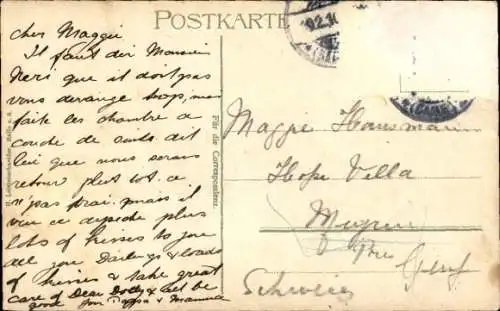 POSTKARTE
cher Maggie
Il faut dir Monsieur
Neri que il doit pas
vous derange trop, mai
faite les chambre a
couche de suite dit
lui que nous serons
retour plut tot. ce
n'pas vrai. mais il
plus
lots of kisses to you
all you Darlings & loads
of kisses & take great
care of Dear Dolly & all be
good from Pappa & Mamma
Für die Correspondenz.
Maggie
Hope Villa
Genf
Schweiz